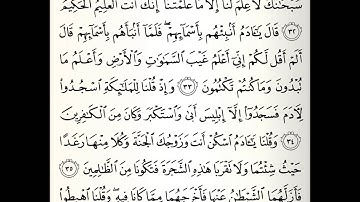 سُبْحَٰنَكَ لَا عِلْمَ لَنَآ إِلَّا مَا عَلَّمْتَنَآ ۖ إِنَّكَ أَنتَ ٱلْعَلِيمُ ٱلْحَكِيمُ
٣٢ قَالَ يَٰٓـَٔادَمُ أَنۢبِئْهُم بِأَسْمَآئِهِمْ ۖ فَلَمَّآ أَنۢبَأَهُم بِأَسْمَآئِهِمْ قَالَ
أَلَمْ أَقُل لَّكُمْ إِنِّىٓ أَعْلَمُ غَيْبَ ٱلسَّمَٰوَٰتِ وَٱلْأَرْضِ وَأَعْلَمُ مَا
تُبْدُونَ وَمَا كُنتُمْ تَكْتُمُونَ ٣٣ وَإِذْ قُلْنَا لِلْمَلَٰٓئِكَةِ ٱسْجُدُوا۟
لِـَٔادَمَ فَسَجَدُوٓا۟ إِلَّآ إِبْلِيسَ أَبَىٰ وَٱسْتَكْبَرَ وَكَانَ مِنَ ٱلْكَٰفِرِينَ
٣٤ وَقُلْنَا يَٰٓـَٔادَمُ ٱسْكُنْ أَنتَ وَزَوْجُكَ ٱلْجَنَّةَ وَكُلَا مِنْهَا رَغَدًا
حَيْثُ شِئْتُمَا وَلَا تَقْرَبَا هَٰذِهِ ٱلشَّجَرَةَ فَتَكُونَا مِنَ ٱلظَّٰلِمِينَ ٣٥
فَأَزَلَّهُمَا ٱلشَّيْطَٰنُ عَنْهَا فَأَخْرَجَهُمَا مِمَّا كَانَا فِيهِ ۖ وَقُلْنَا ٱهْبِطُوا۟